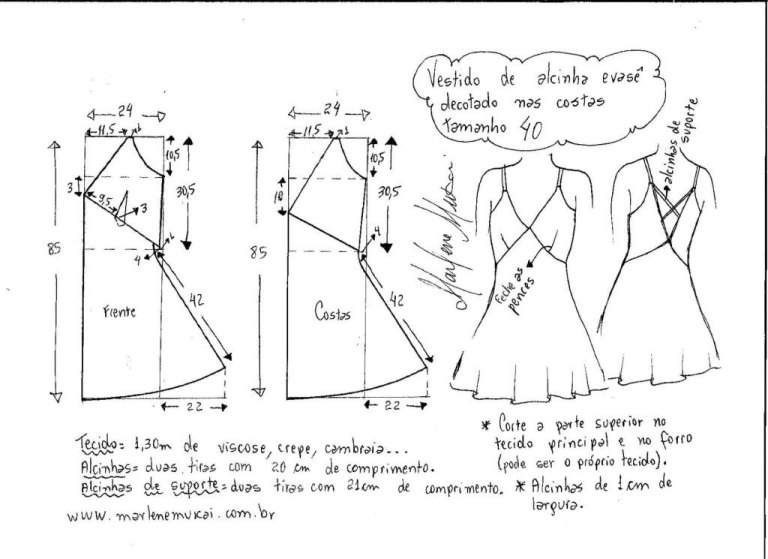 Vestido de alcinha evasê
decotado nas costas
tamanho 40
24
11,5
1
10,5
3
9,5
3
30,5
85
1
4
42
Frente
22
24
11,5
1
10,5
18
30,5
85
4
42
Costas
22
Marlene Mukai
Feche as
pences
alcinhas de
suporte
Tecido= 1,30m de viscose, crepe, cambraia...
Alcinhas= duas tiras com 20 cm de comprimento.
Alcinhas de suporte= duas tiras com 21cm de comprimento.
www.marlenemukai.com.br
* Corte a parte superior no
tecido principal e no forro
(pode ser o próprio tecido).
* Alcinhas de 1cm de
largura.